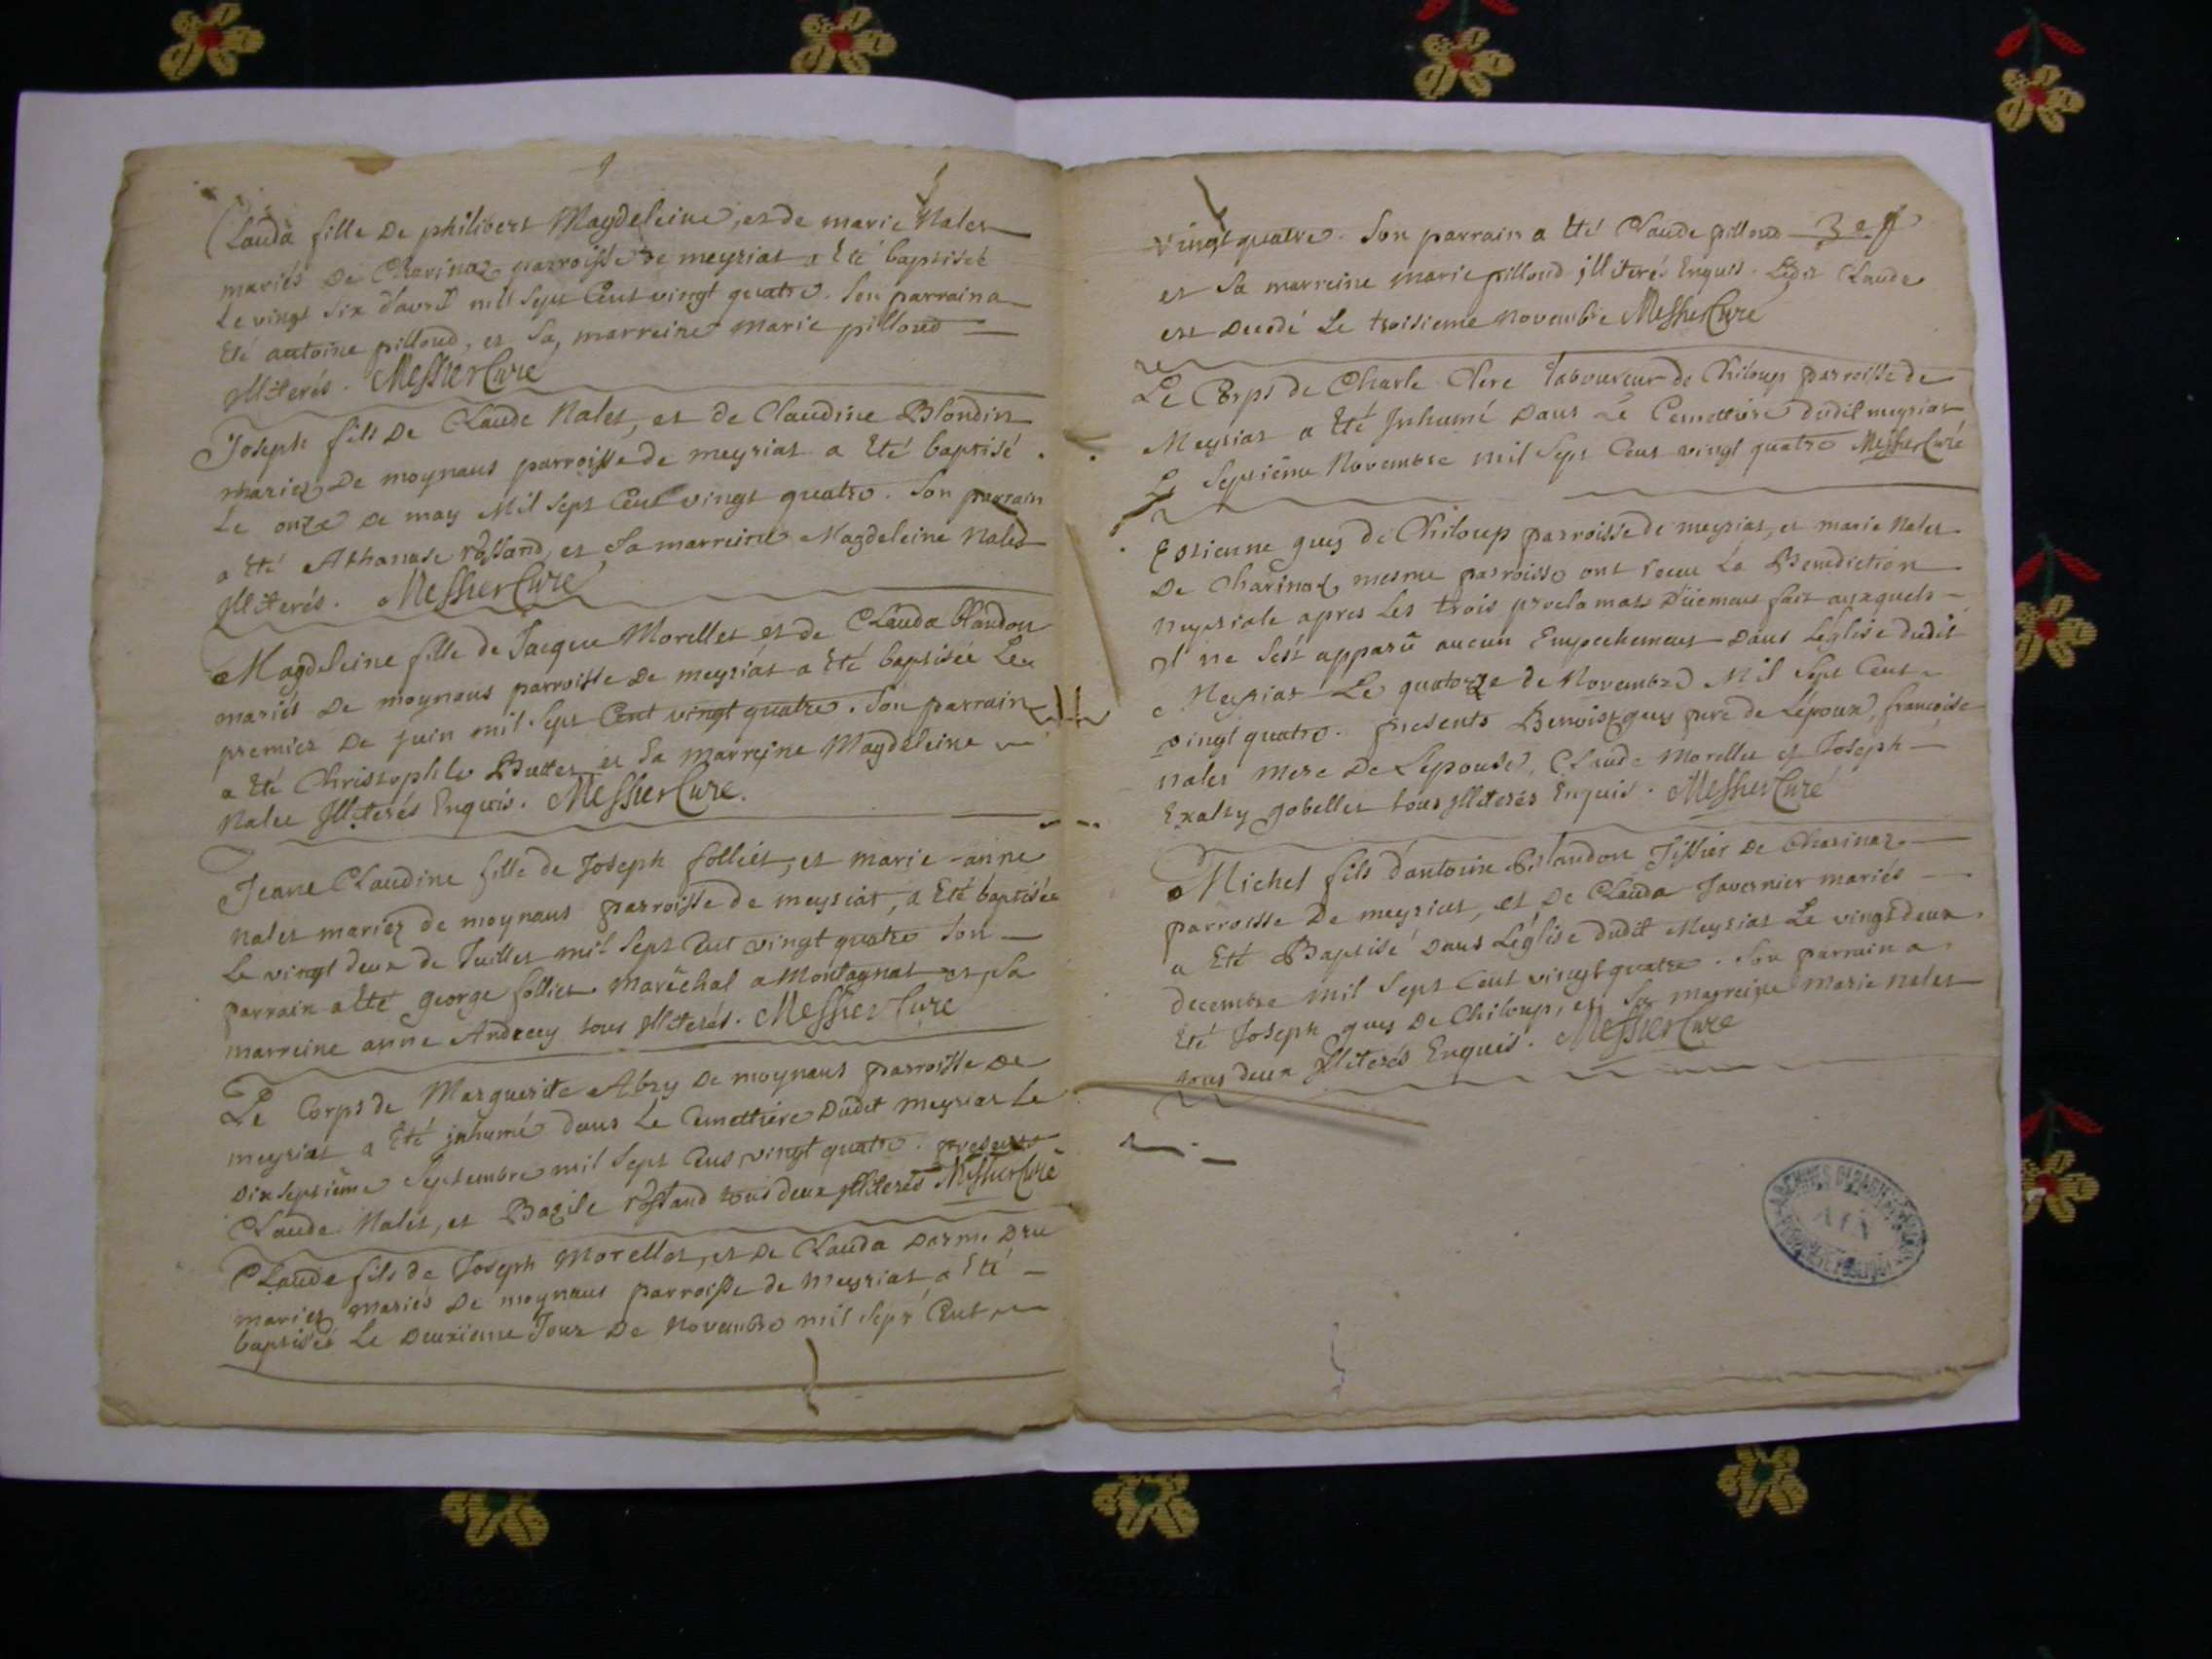 Clauda fille De philibert Magdeleine, et de marie Nalet
mariés De Charinaz parroisse de meyriat a Eté baptisée
Le vingt six d'avril mil sept Cent vingt quatre. Son parrain a
Eté antoine pilloud, et Sa marreine marie pilloud
Illiterés. Messier Curé
Joseph fils De Claude Nalet, et de Claudine Blondin
mariez De moynans parroisse de meyriat a Eté baptisé
Le onze De may Mil sept Cent vingt quatre. Son parrain
a Eté Athanase rossand, et Sa marreine Magdeleine Nalet
Illiterés. Messier Curé
Magdeleine fille de Jacque Morellet et de Clauda blandon
mariés De moynans parroisse De meyriat a Eté baptisée Le
premier De juin mil sept Cent vingt quatre. Son parrain
a Eté Christophle Buttet et Sa marreine Magdeleine
Nalet Illiterés Enquis. Messier Curé.
Jeane Claudine fille de Joseph folliet, et marie-anne
Nalet mariez de moynans parroisse de meyriat, a Eté baptisée
Le vingt deux de Juillet mil sept Cent vingt quatre Son
parrain a Eté george folliet maréchal a Montagnat et Sa
marreine anne Andrecy tous Illiterés. Messier Curé
Le Corps de Marguerite Abry De moynans parroisse De
meyriat a Eté inhumé dans Le Cemettiere Dudit meyriat Le
Dix septième septembre mil sept Cent vingt quatre. presents
Claude Nalet, et Bazile rossand tous deux Illiterés Messier Curé
Claude fils de Joseph Morellet, et De Clauda Darme Dru
mariez mariés De moynans parroisse de Meyriat a Eté
baptisée Le Deuxieme Jour De Novembre mil sept Cent
vingt quatre. Son parrain a Eté Claude pilloud
et Sa marreine marie pilloud illiterés Enquis. Ledit Claude
est Decedé Le troisieme novembre Messier Curé
Le Corps de Charle Clerc laboureur de Chiloup parroisse de
Meyriat a Eté Inhumé Dans Le Cemettiere dudit meyriat
Le septième Novembre mil sept Cent vingt quatre Messier Curé
Estienne guy de Chiloup parroisse de meyriat, et marie Nalet
De Charinaz mesme parroisse ont receu La Benediction
nuptiale apres Les trois proclamats Düement fait auxquels
Il ne s'est apparû aucun Empechement Dans L'église dudit
Meyriat Le quatorze de Novembre Mil sept Cent
vingt quatre. presents Benoist guy pere de L'époux, francoise
nalet mere De L'epouse, Claude Morellet et Joseph
Exalty gobellet tous illiterés Enquis. Messier Curé
Michel fils d'antoine Blandon Tissier De Charinaz
parroisse De meyriat, et De Clauda Tavernier mariés
a Eté Baptisé Dans L'église dudit Meyriat Le vingt deux
decembre mil sept Cent vingt quatre. Son parrain a
Eté Joseph guy De Chiloup, et Sa marreine marie nalet
tous deux Illiterés Enquis. Messier Curé